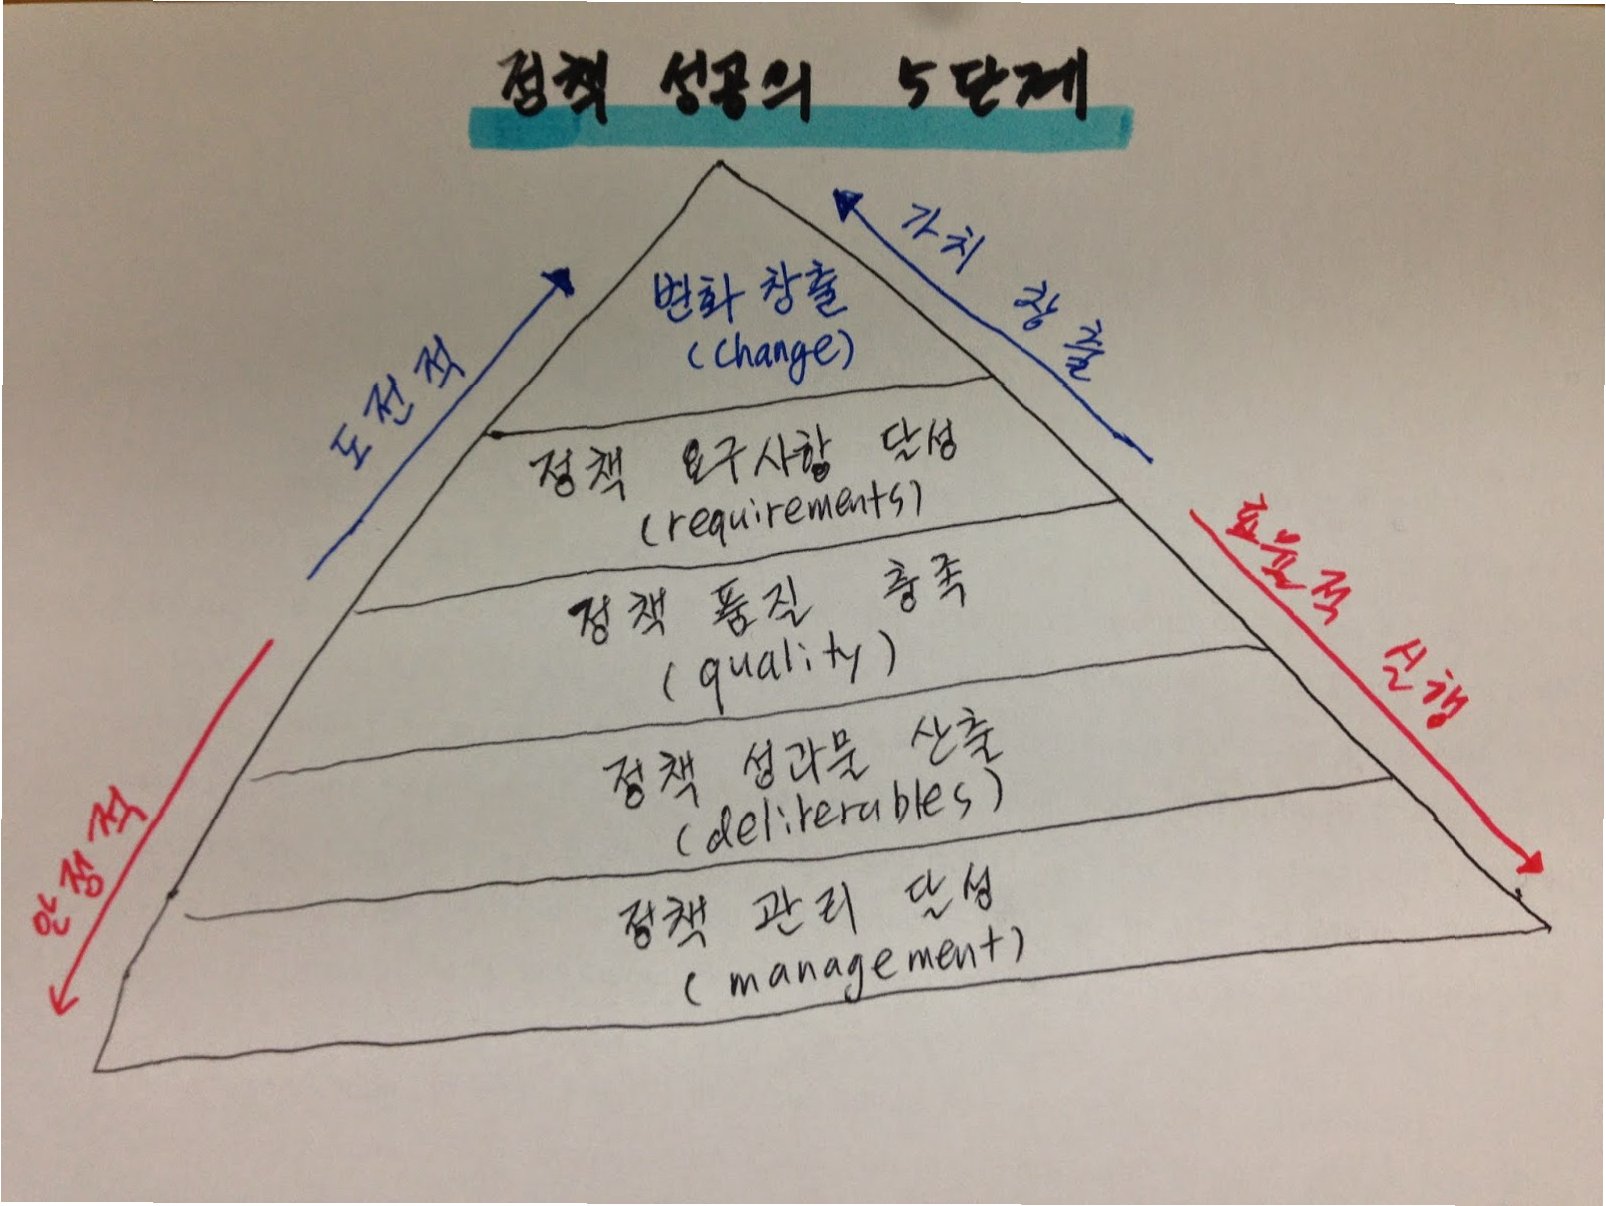 정책 성공의 5단계
가치 창출
변화 창출
(change)
도전적
정책 요구사항 달성
(requirements)
효율적 실행
정책 품질 충족
(quality)
정책 성과물 산출
(deliverables)
안정적
정책 관리 달성
(management)